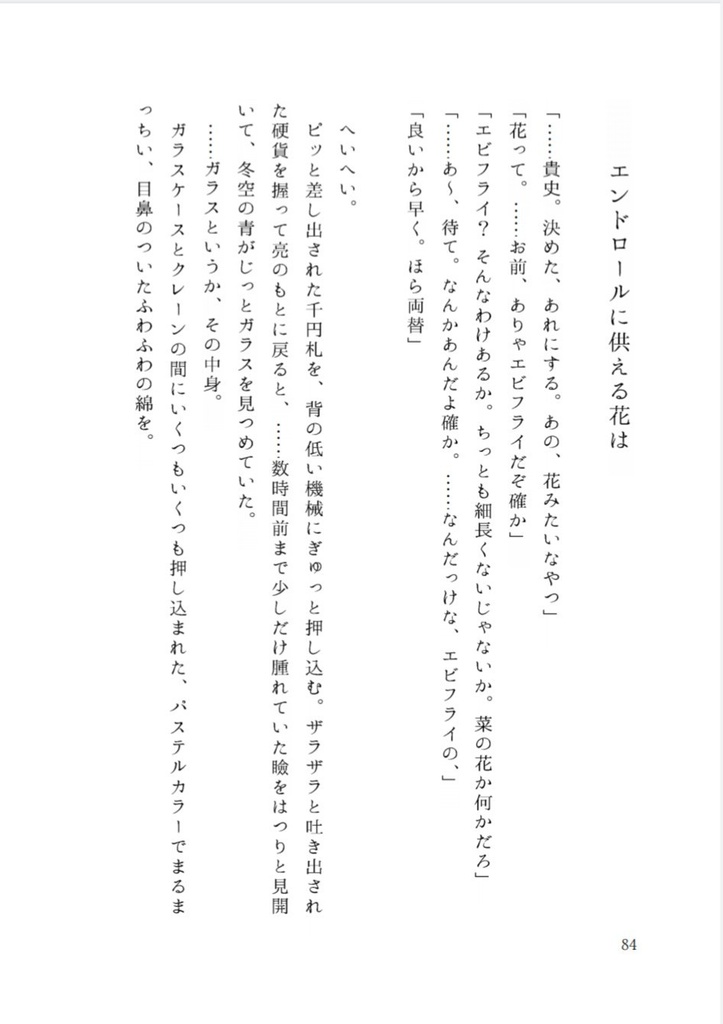 エンドロールに供える花は
「……貴史。決めた、あれにする。あの、花みたいなやつ」
「花って。……お前、ありゃエビフライだぞ確か」
「エビフライ？ そんなわけあるか。ちっとも細長くないじゃないか。菜の花か何かだろ」
「……あ〜、待て。なんかあんだよ確か。……なんだっけな、エビフライの、」
「良いから早く。ほら両替」
へいへい。
ピッと差し出された千円札を、背の低い機械にぎゅっと押し込む。ザラザラと吐き出され
た硬貨を握って亮のもとに戻ると、……数時間前まで少しだけ腫れていた瞼をはつりと見開
いて、冬空の青がじっとガラスを見つめていた。
……ガラスというか、その中身。
ガラスケースとクレーンの間にいくつもいくつも押し込まれた、パステルカラーでまるま
っちい、目鼻のついたふわふわの綿を。
84